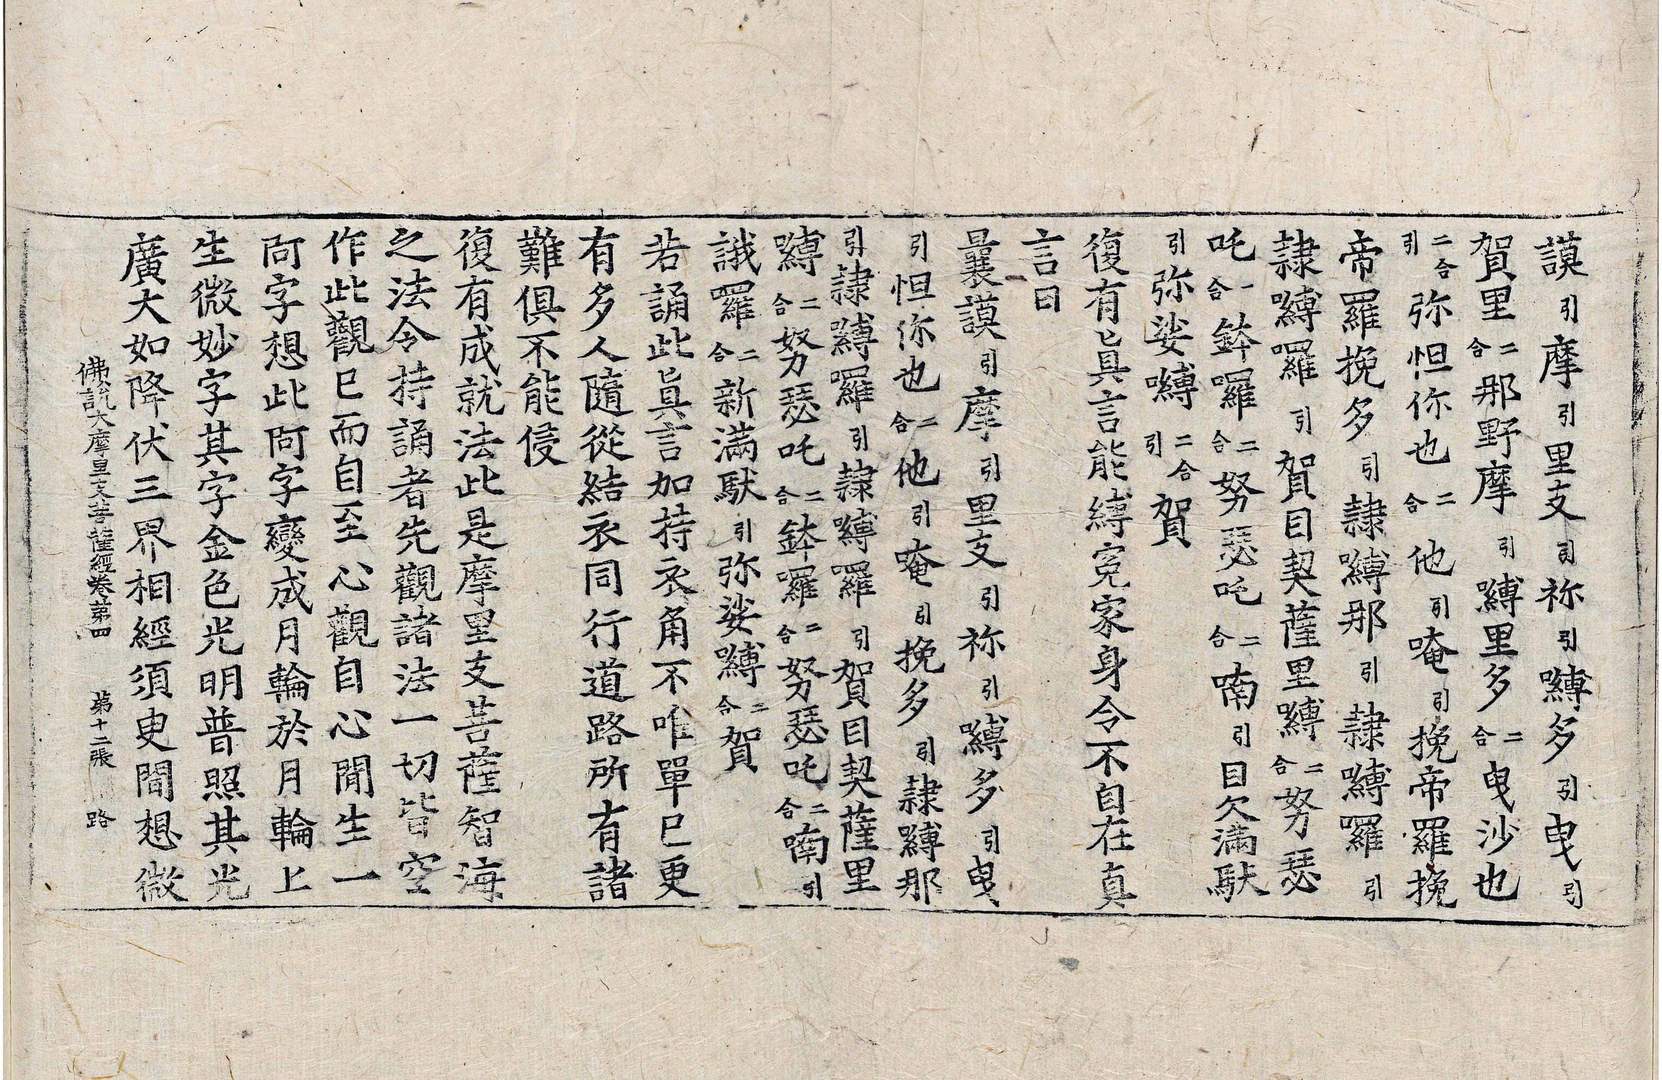 謨引摩引里支引祢引嚩多引曳引
賀里二合那野摩引嚩里多二合曳沙也
二合引弥怛你也二合他引唵引挽帝羅挽
帝羅挽多引隷嚩那引隷嚩羅引
隷嚩羅引賀目契薩里嚩二合努瑟
吒二合鉢羅二合努瑟吒二合喃引目欠滿馱
引弥娑嚩二合引賀
復有眞言能縛寃家身令不自在真
言曰
曩謨引摩引里支引祢引嚩多引曳
引怛你也二合他引唵引挽多引隷嚩那
引隷嚩羅引隷嚩羅引賀目契薩里
嚩二合努瑟吒二合鉢羅二合努瑟吒二合喃引
誐羅二合新滿馱引弥娑嚩二合賀
若誦此眞言加持衣角不唯單已更
有多人隨從結衣同行道路所有諸
難俱不能侵
復有成就法此是摩里支菩薩智海
之法令持誦者先觀諸法一切皆空
作此觀已而自至心觀自心間生一
阿字想此阿字變成月輪於月輪上
生微妙字其字金色光明普照其光
廣大如降伏三界相經須臾間想微
佛說大摩里支菩薩經卷第四 第十二張 路